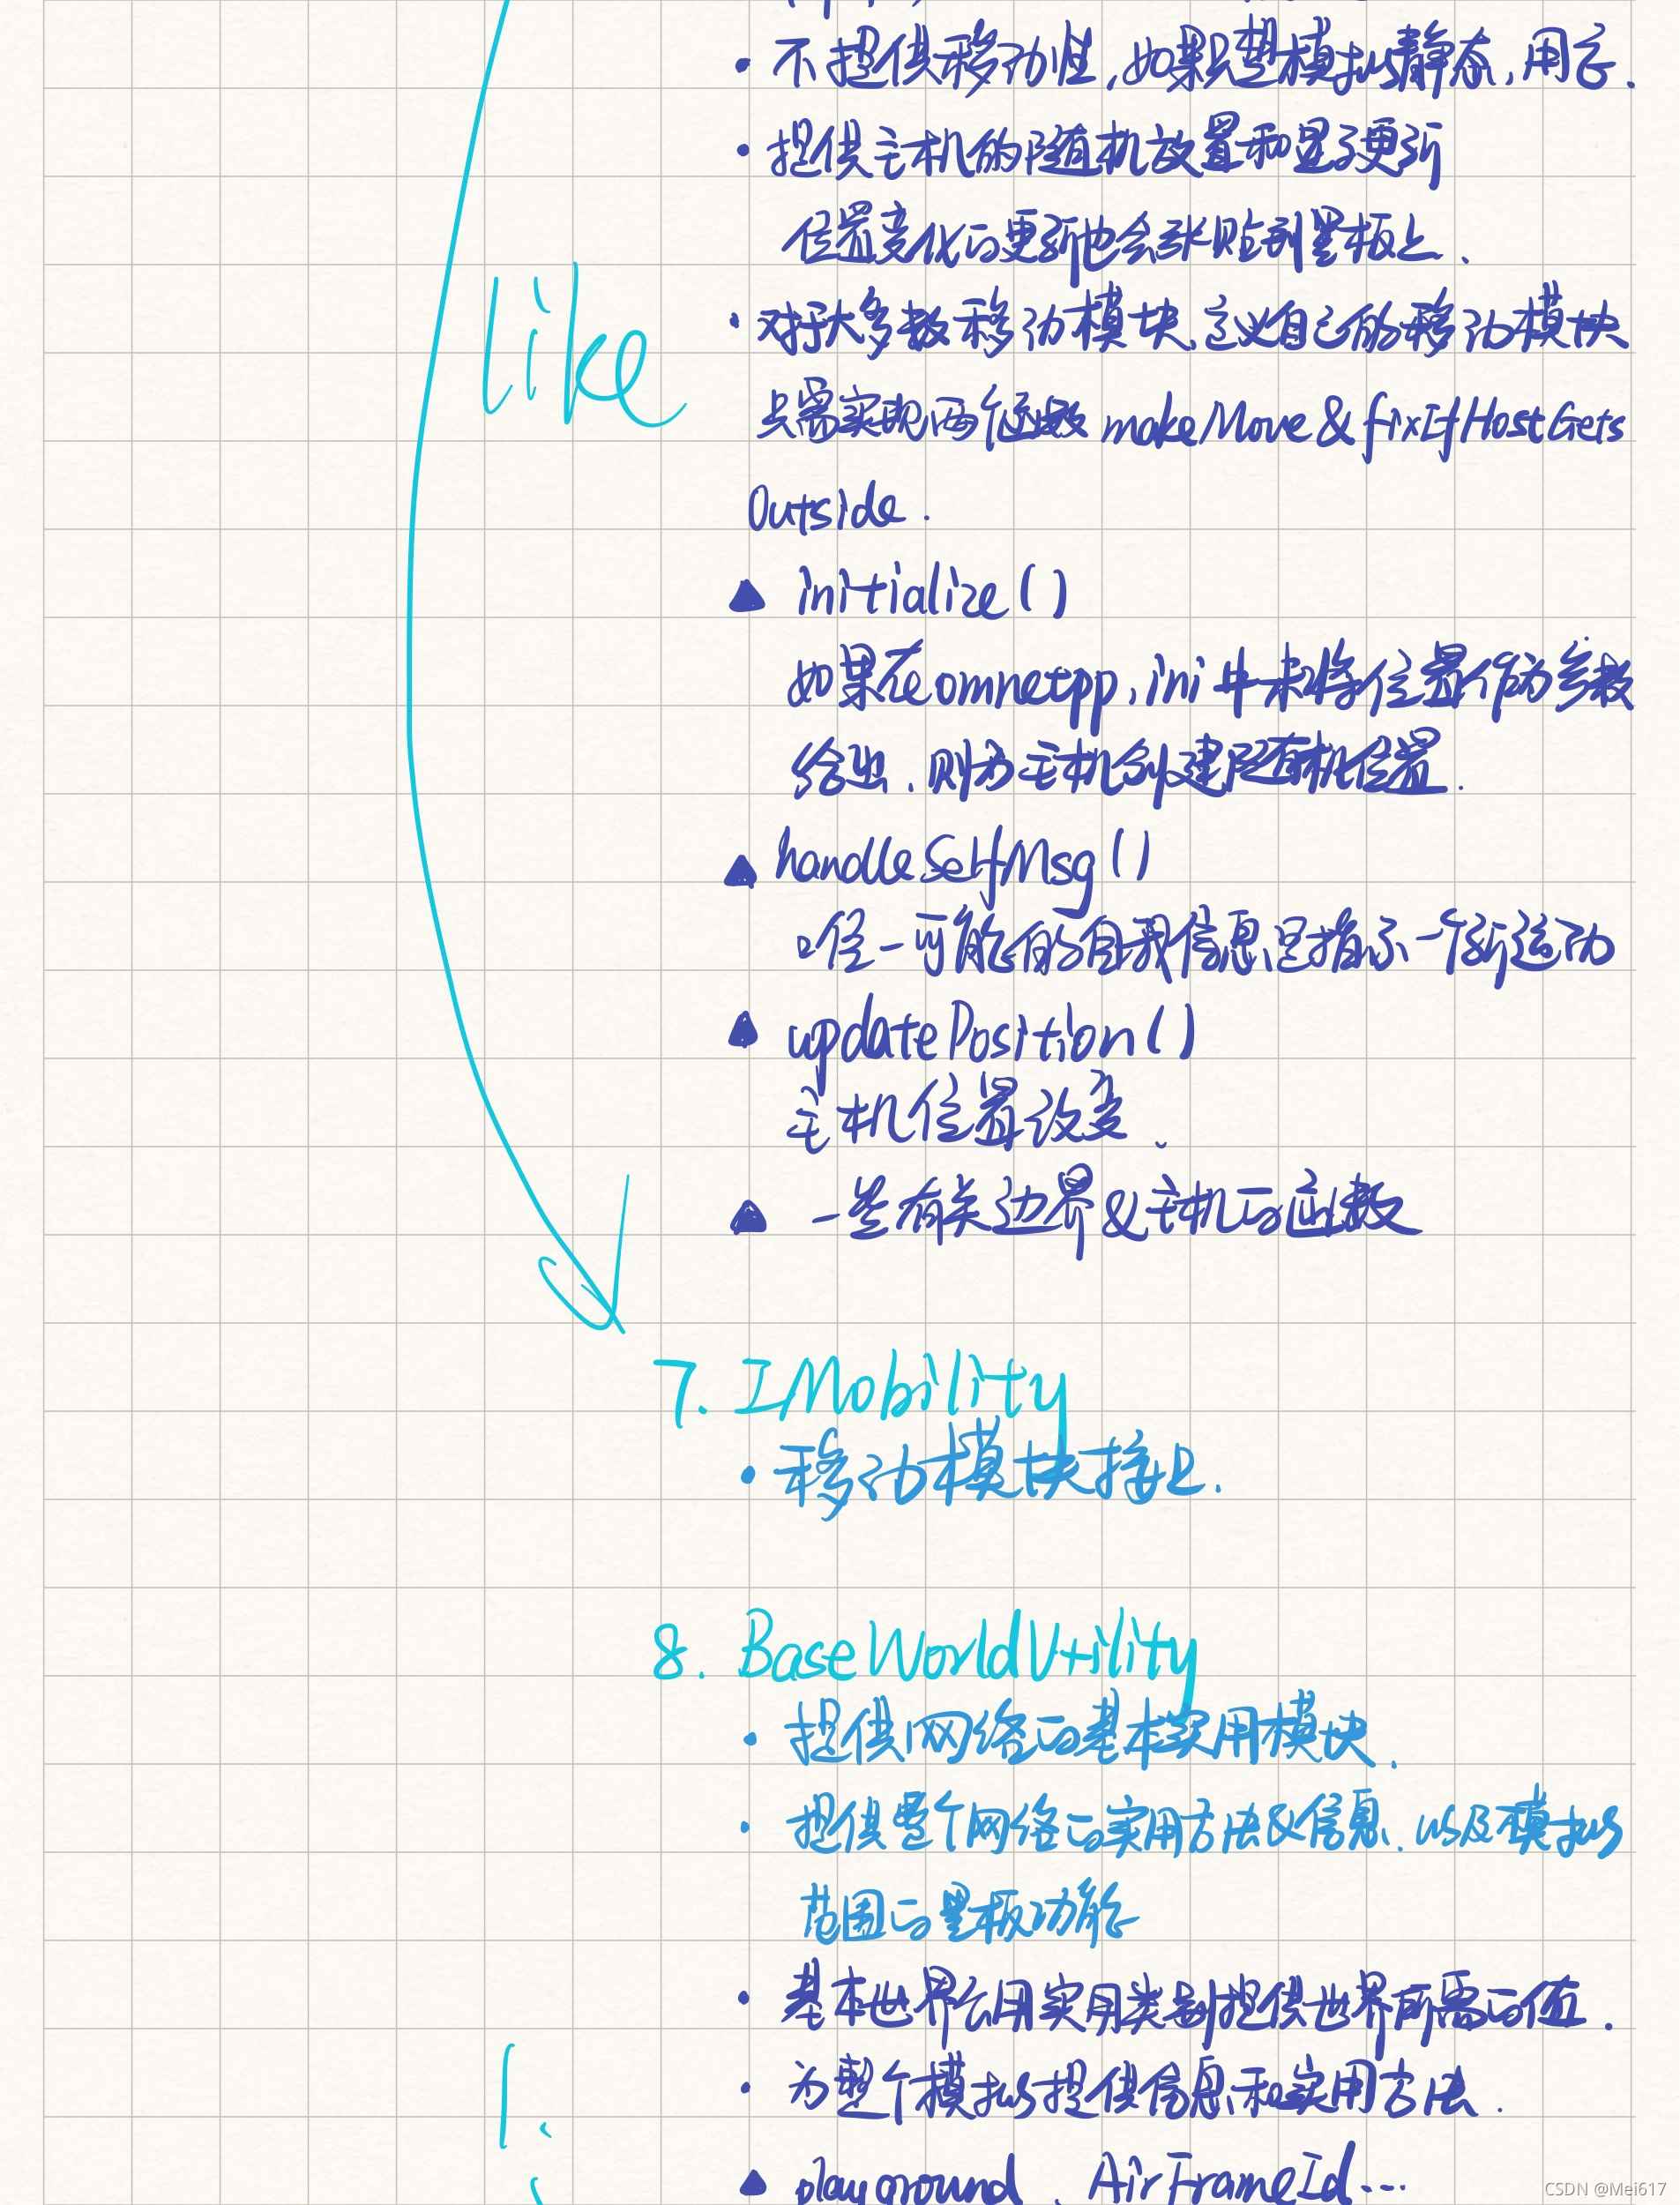 • 不提供移动性,如果只想模拟静态,用它.
• 提供主机的随机放置和显示更新
位置变化的更新也会张贴到黑板上.
• 对于大多数移动模块,定义自己的移动模块
like
只需实现两个函数 makeMove & fixIfHostGets
Outside.
▲ initialize()
如果在omnetpp.ini中未将位置作为参数
给出,则为主机创建随机位置.
▲ handleSelfMsg()
唯一可能的自我信息是指示一个新运动
▲ updatePosition()
主机位置改变.
▲ 一些有关边界&主机的函数
7. IMobility
• 移动模块接口.
8. BaseWorldUtility
• 提供网络的基本实用模块.
• 提供整个网络的实用方法及信息,以及模拟
范围的黑板功能
• 基本世界公用实用类别提供世界所需的值.
• 为整个模拟提供信息和实用方法.
▲ playground、AirFrameId...
CSDN @Mei617